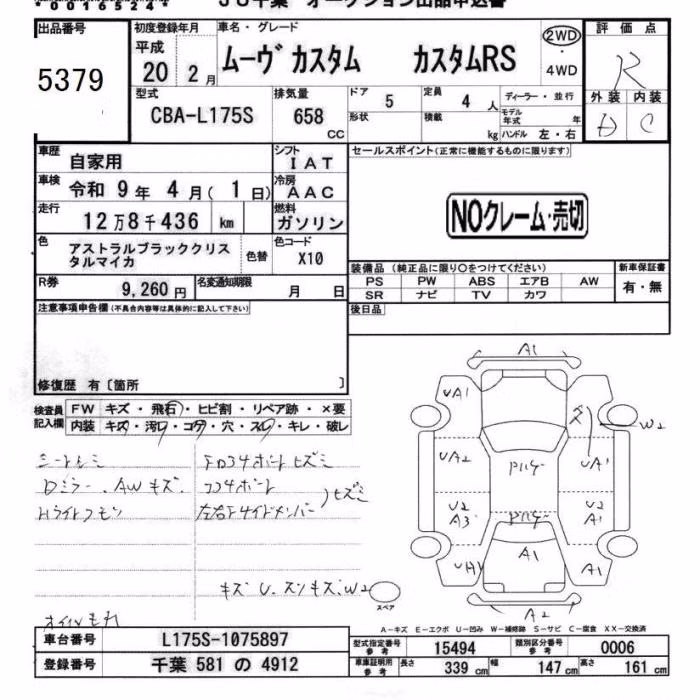 00165244
JU千葉 オークション出品申込書
出品番号
5379
初度登録年月
平成
20 2月
車名・グレード
ムーヴ カスタム カスタムRS
2WD
・
4WD
評価点
R
外装 内装
D C
型式
CBA-L175S
排気量
658
CC
ドア 5
形状
定員 4 人
積載 kg
ディーラー・並行
モデル年式 年
ハンドル 左・右
車歴
自家用
シフト
IAT
車検
令和 9年 4月( 1日)
冷房
AAC
走行
12万8千436 km
燃料
ガソリン
色
アストラルブラッククリス
タルマイカ
色替
色コード
X10
R券
9,260 円
名変通知期限
月 日
セールスポイント(正常に機能するものに限ります)
NOクレーム・売切
装備品(純正品に限り○をつけてください)
PS PW ABS エアB AW
SR ナビ TV カワ
新車保証書
有・無
後日品
注意事項申告欄(不具合内容等は具体的に記入して下さい)
修復歴 有〔箇所 〕
検査員
記入欄
FW キズ・飛石・ヒビ割・リペア跡・×要
内装 キズ・汚レ・コゲ・穴・スレ・キレ・破レ
シートシミ
Dミラー、AWキズ.
Hライトクモリ
コアサポートヒズミ
左右Fサイドメンバー)ヒズミ
キズ U. スリキズ. W2
オイルもれ
A1
UA1
キズ
W2
UA2
UA1
U2
A3
U2
A1
A1
UA1
A1
A2
スペア
A-キズ E-エクボ U-凹み W-補修跡 S-サビ C-腐食 XX-交換済
車台番号 L175S-1075897
登録番号 千葉 581 の 4912
型式指定番号
参考
15494
類別区分番号
参考
0006
車庫証明用
参考
長さ 339 cm
幅 147 cm
高さ 161 cm